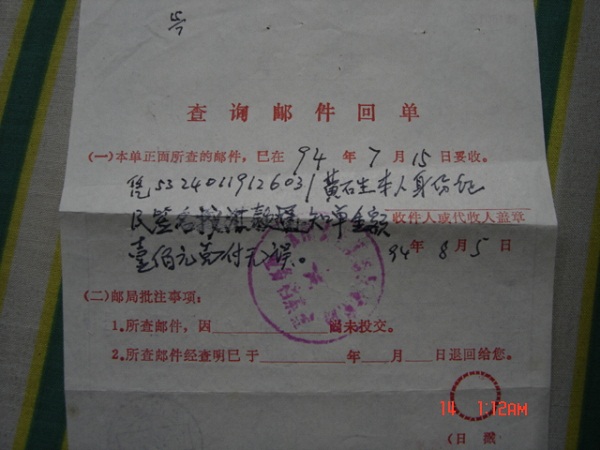 5/7
查询邮件回单
(一)本单正面所查的邮件，已在 94 年 7 月 15 日妥收。
凭53240119126031黄石生本人身份证
签名按汇款通知单金额 收件人或代收人盖章
壹佰元兑付无误。 94 年 8 月 5 日
(二)邮局批注事项：
1.所查邮件，因 尚未投交。
2.所查邮件经查明已于 年 月 日退回给您。
14 1:12AM
(日 戳